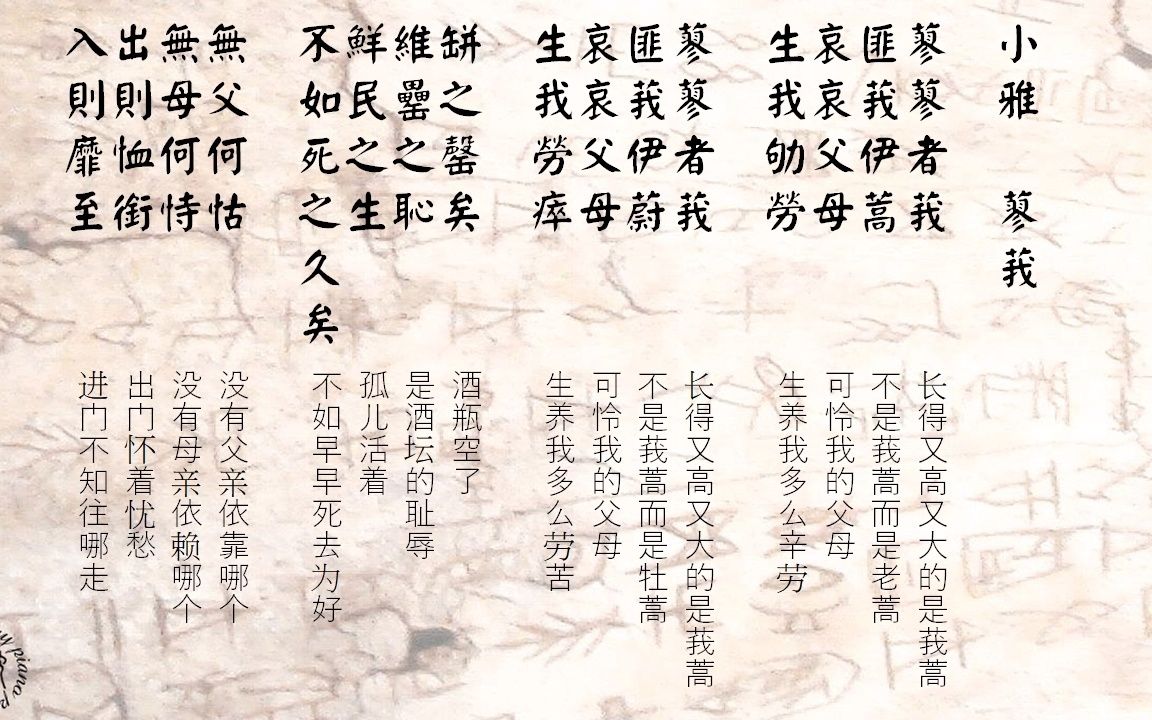 小雅 蓼莪
蓼蓼者莪
匪莪伊蒿
哀哀父母
生我劬勞
蓼蓼者莪
匪莪伊蔚
哀哀父母
生我勞瘁
缾之罄矣
維罍之恥
鮮民之生
不如死之久矣
無父何怙
無母何恃
出則恤銜
入則靡至
长得又高又大的是莪蒿
不是莪蒿而是老蒿
可怜我的父母
生养我多么辛劳
长得又高又大的是莪蒿
不是莪蒿而是牡蒿
可怜我的父母
生养我多么劳苦
酒瓶空了
是酒坛的耻辱
孤儿活着
不如早早死去为好
没有父亲依靠哪个
没有母亲依赖哪个
出门怀着忧愁
进门不知往哪走
piano